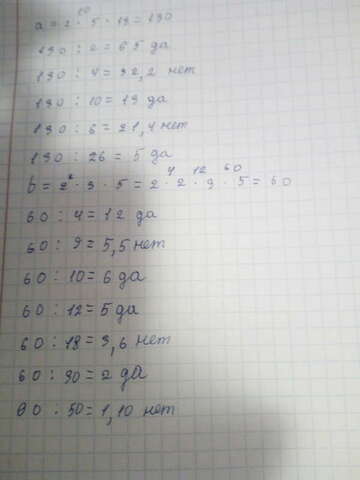 10
a = 2 · 5 · 13 = 130
130 : 2 = 65 да
130 : 4 = 32,2 нет
130 : 10 = 13 да
130 : 6 = 21,4 нет
130 : 26 = 5 да
4 12 60
b = 2² · 3 · 5 = 2 · 2 · 3 · 5 = 60
60 : 4 = 12 да
60 : 9 = 5,5 нет
60 : 10 = 6 да
60 : 12 = 5 да
60 : 18 = 3,6 нет
60 : 30 = 2 да
60 : 50 = 1,10 нет